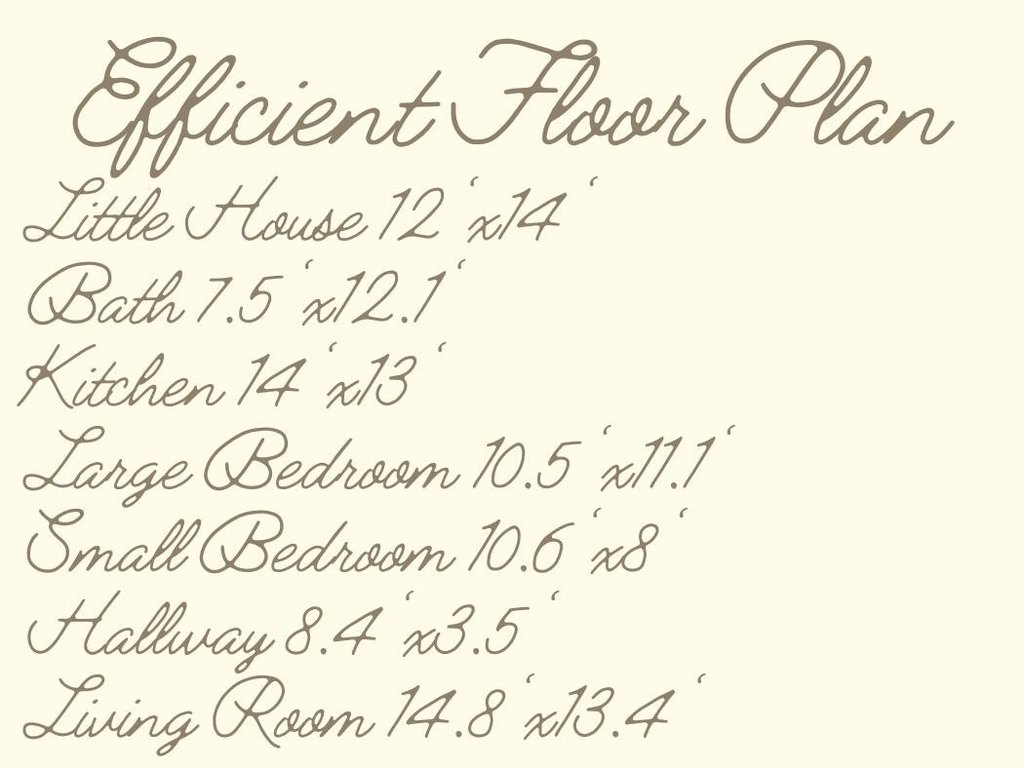 Efficient Floor Plan
Little House 12'x14'
Bath 7.5'x12.1'
Kitchen 14'x13'
Large Bedroom 10.5'x11.1'
Small Bedroom 10.6'x8'
Hallway 8.4'x3.5'
Living Room 14.8'x13.4'